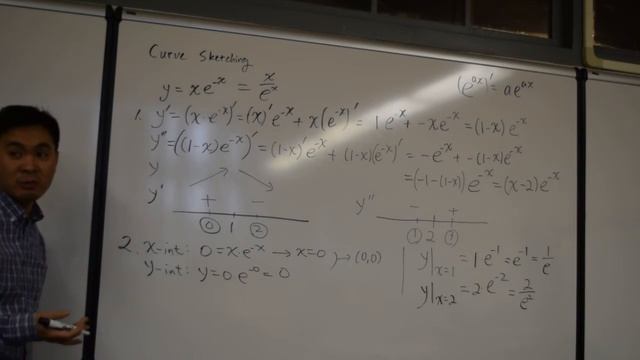 Curve Sketching
y = xe^{-x} = x/e^x
(e^{ax})' = ae^{ax}
1. y' = (x·e^{-x})' = (x)'e^{-x} + x(e^{-x})' = 1e^{-x} + -xe^{-x} = (1-x)e^{-x}
y'' = ((1-x)e^{-x})' = (1-x)'e^{-x} + (1-x)(e^{-x})' = -e^{-x} + -(1-x)e^{-x}
= (-1-(1-x))e^{-x} = (x-2)e^{-x}
y
y' + -
0 1 2
y'' - +
1 2 3
2. x-int: 0 = x·e^{-x} → x=0 → (0,0)
y-int: y = 0e^{-0} = 0
y|_{x=1} = 1e^{-1} = e^{-1} = 1/e
y|_{x=2} = 2e^{-2} = 2/e^2